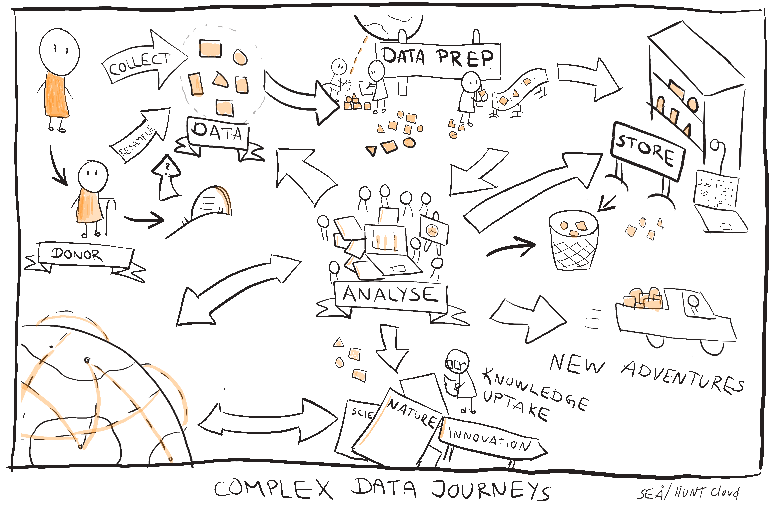 COLLECT
DATA PREP
DATA
STORE
DONOR
ANALYSE
NEW ADVENTURES
KNOWLEDGE
UPTAKE
SCIE
NATURE
INNOVATION
COMPLEX DATA JOURNEYS
SEÅ/HUNT Cloud